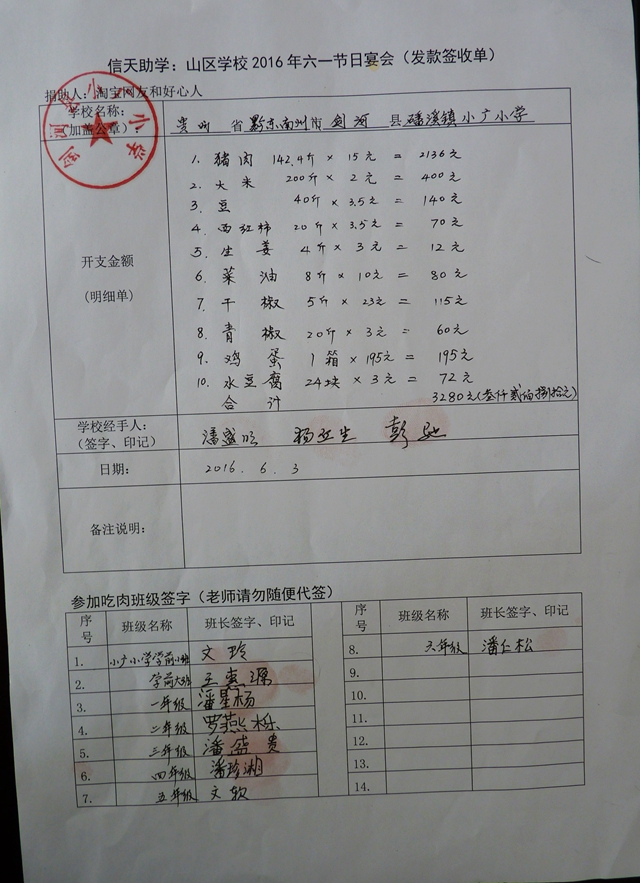 信天助学：山区学校2016年六一节日宴会（发款签收单）
捐助人：淘宝网友和好心人
学校名称：
（加盖公章）
贵州 省 黔东南州 市 剑河 县 磻溪镇小广小学
1. 猪肉 142.4斤 × 15元 = 2136元
2. 大米 200斤 × 2元 = 400元
3. 豆 40斤 × 3.5元 = 140元
4. 西红柿 20斤 × 3.5元 = 70元
5. 生姜 4斤 × 3元 = 12元
6. 菜油 8斤 × 10元 = 80元
7. 干椒 5斤 × 23元 = 115元
8. 青椒 20斤 × 3元 = 60元
9. 鸡蛋 1箱 × 195元 = 195元
10. 水豆腐 24块 × 3元 = 72元
合计 3280元(叁仟贰佰捌拾元)
开支金额
(明细单)
学校经手人：
（签字、印记）
潘盛 杨 生 彭
日期：
2016. 6. 3
备注说明：
参加吃肉班级签字（老师请勿随便代签）
序号 班级名称 班长签字、印记 序号 班级名称 班长签字、印记
1. 小广小学学前小班 文玲 8. 六年级 潘仁松
2. 学前大班 王 源 9.
3. 一年级 潘星杨 10.
4. 二年级 罗燕栎 11.
5. 三年级 潘盛贵 12.
6. 四年级 潘珍湘 13.
7. 五年级 文软 14.